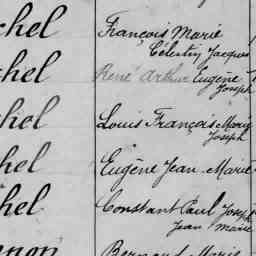 chel François Marie
Célestin Jacques
chel René Arthur Eugène
Joseph
chel Louis François Marie
Joseph
chel Eugène Jean Marie
chel Constant Paul Joseph
Jean Marie
Bernard Marie